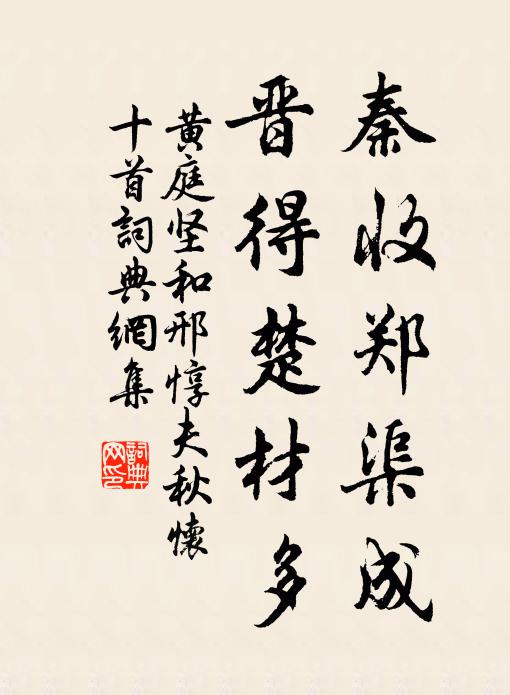 秦收郑渠成
晋得楚材多
黄庭坚和邢惇夫秋懷
十首詞典網集
詞典網印